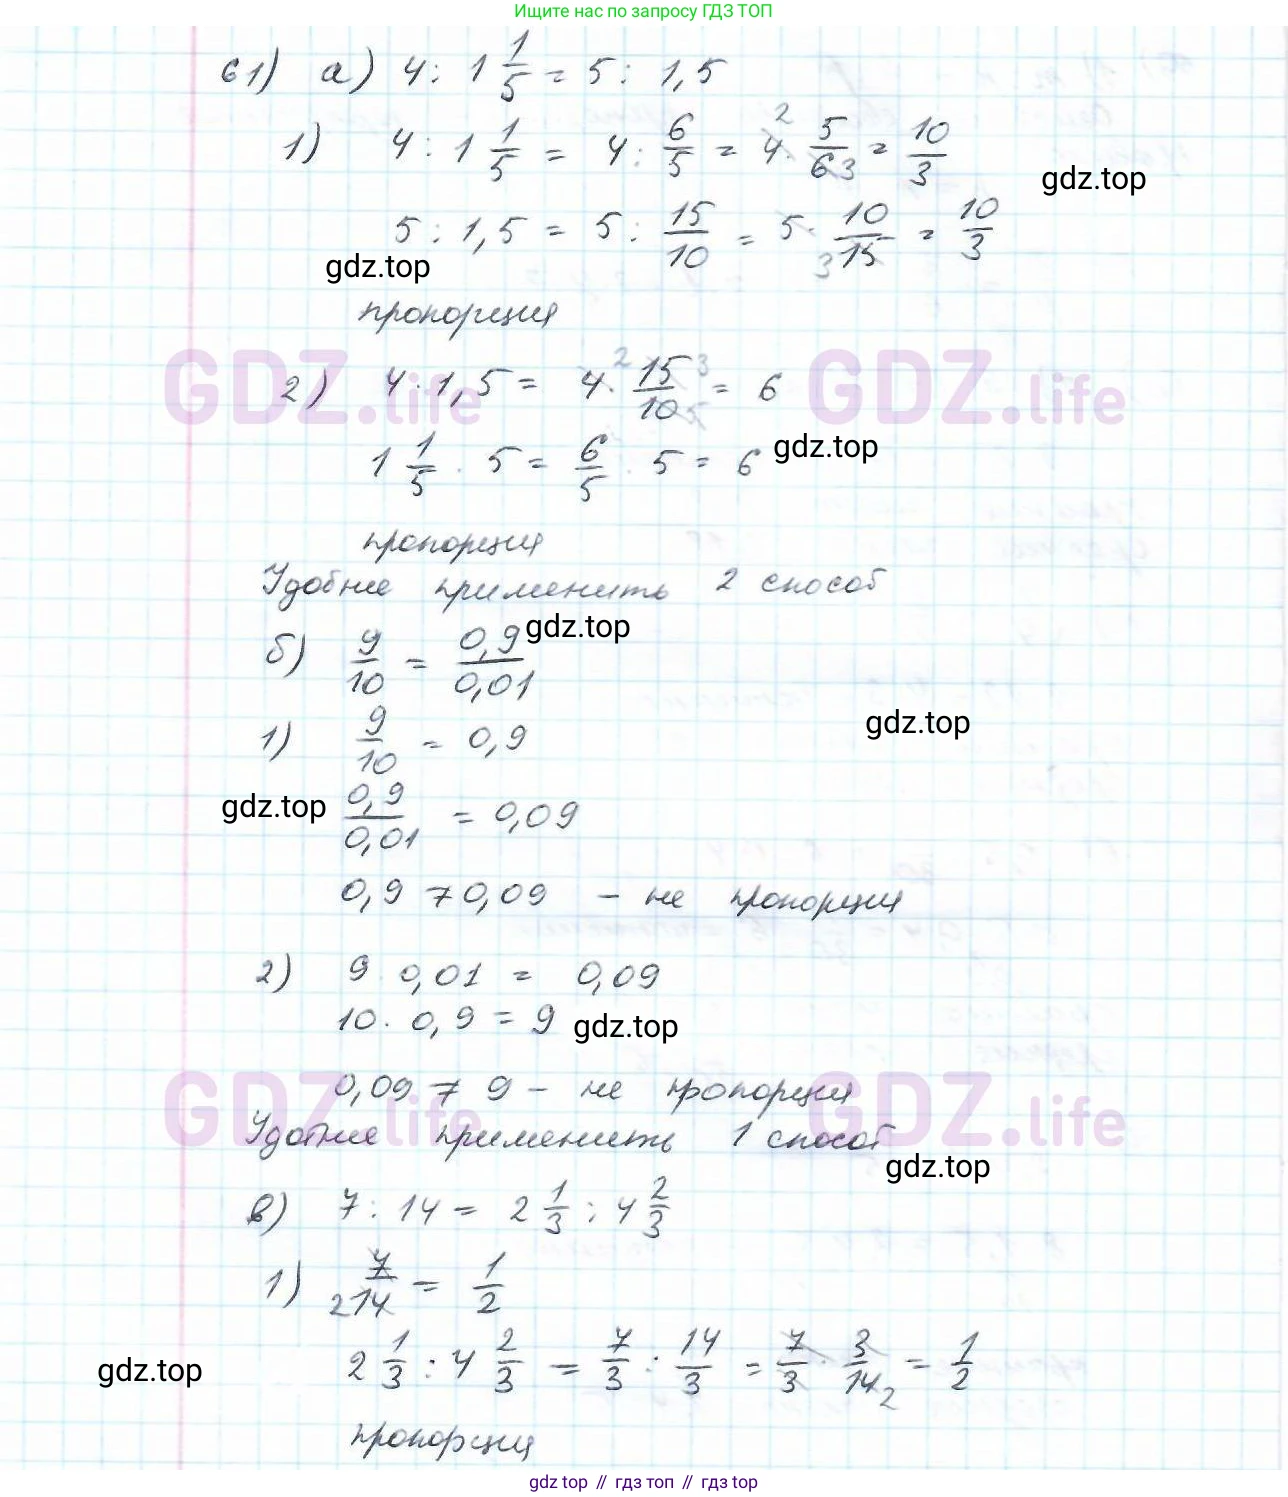 Ищите нас по запросу ГДЗ ТОП
61) а) 4 : 1 1/5 = 5 : 1,5
1) 4 : 1 1/5 = 4 : 6/5 = 4 2 · 5/6 3 = 10/3
gdz.top
5 : 1,5 = 5 : 15/10 = 5 · 10/15 3 = 10/3
gdz.top
пропорция
GDZ.life GDZ.life
2) 4 · 1,5 = 4 2 · 15 3/10 5 = 6
gdz.top
1 1/5 · 5 = 6/5 · 5 = 6
пропорция
Удобнее применить 2 способ
gdz.top
б) 9/10 = 0,9/0,01
1) 9/10 = 0,9
gdz.top
gdz.top
0,9/0,01 = 0,09
0,9 ≠ 0,09 - не пропорция
2) 9 · 0,01 = 0,09
10 · 0,9 = 9
gdz.top
0,09 ≠ 9 - не пропорция
GDZ.life GDZ.life
Удобнее применить 1 способ
gdz.top
в) 7 : 14 = 2 1/3 : 4 2/3
1) 7/14 2 = 1/2
2 1/3 : 4 2/3 = 7/3 : 14/3 = 7/3 · 3/14 2 = 1/2
gdz.top
пропорция
gdz top // гдз топ // гдз top